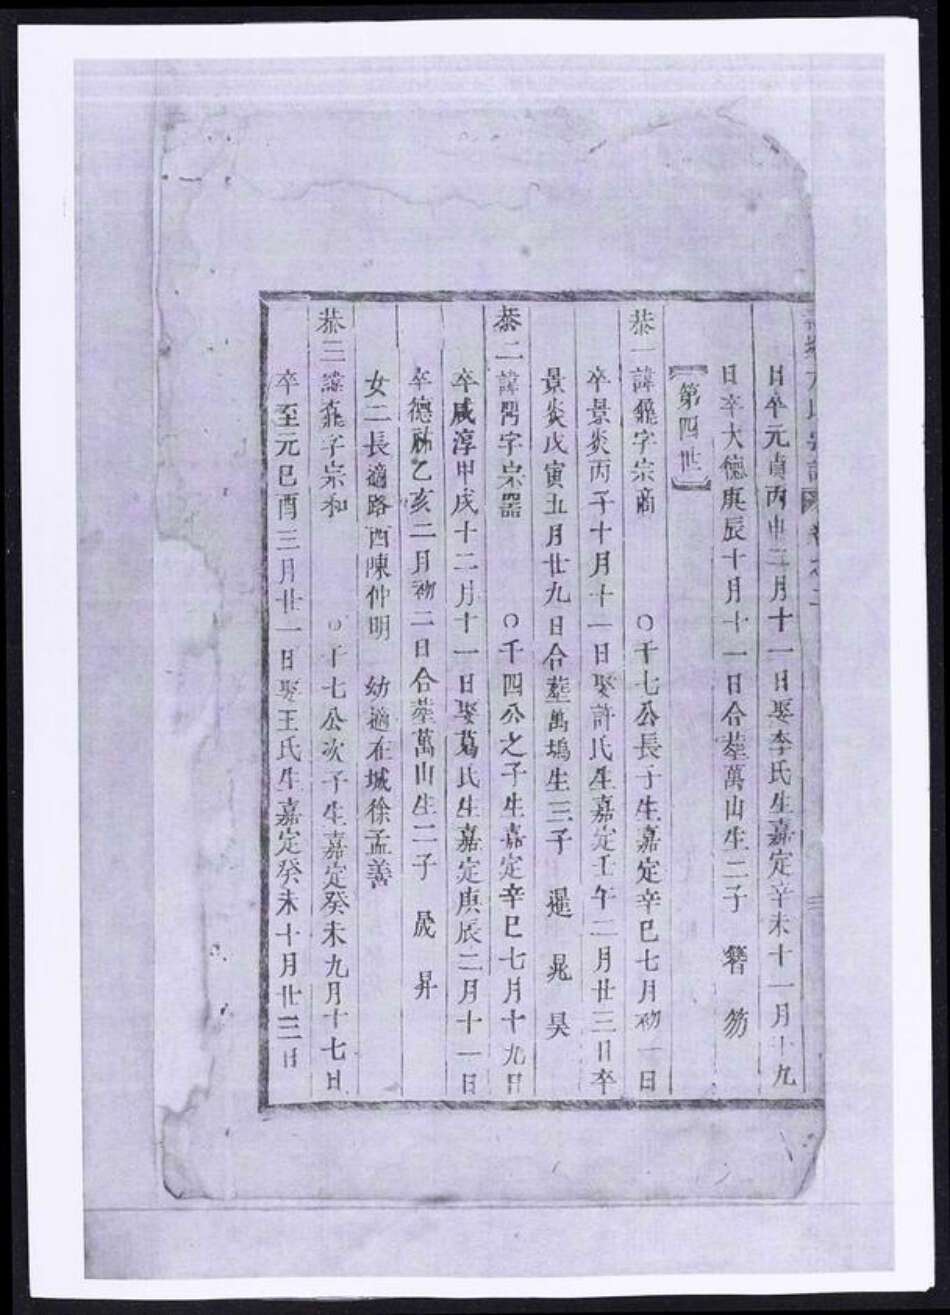 日卒元貞丙申三月十一日娶李氏生嘉定辛未十一月十九
日卒大德庚辰十月十一日合塟萬山生二子 簪 笏
【第四世】
恭一諱 字宗商 〇千七公長子生嘉定辛巳七月初一日
卒景炎丙子十月十一日娶許氏生嘉定壬午二月廿三日卒
景炎戊寅五月廿九日合塟萬塢生三子 暹 晁 昊
恭二諱 字宗器 〇千四公之子生嘉定辛巳七月十九日
卒咸淳甲戌十二月十一日娶葛氏生嘉定庚辰二月十一日
卒德祐乙亥二月初二日合塟萬山生二子 晟 昇
女二長適路西陳仲明 幼適在城徐孟善
恭三諱龕字宗和 〇千七公次子生嘉定癸未九月十七日
卒至元巳酉三月廿一日娶王氏生嘉定癸未十月廿三日